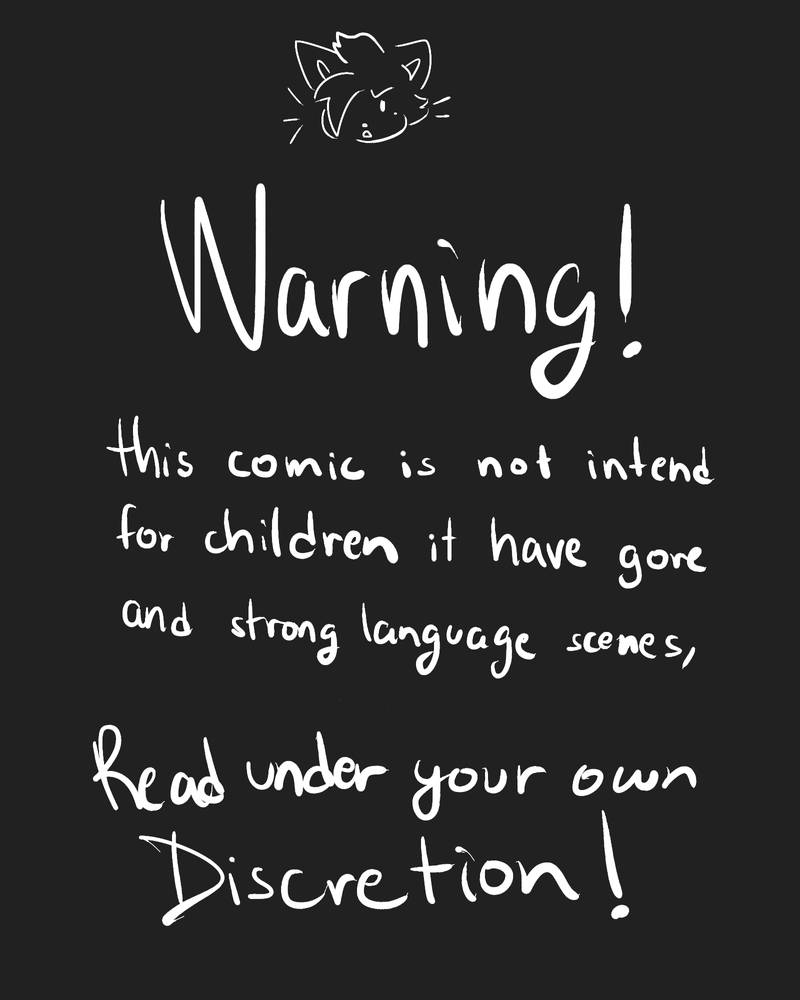 Warning!
this comic is not intend
for children it have gore
and strong language scenes,
Read under your own
Discretion!